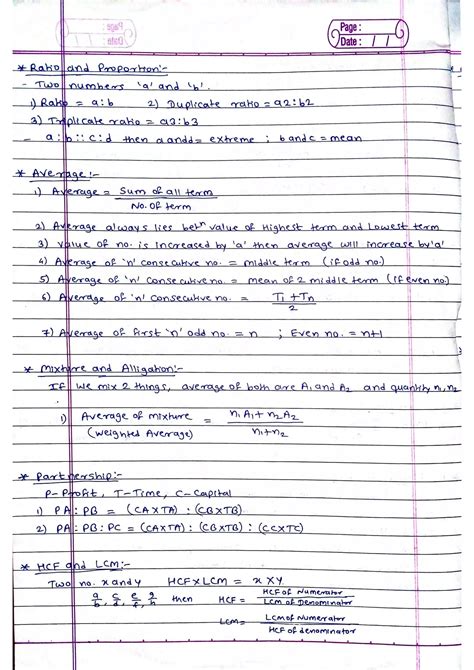 Page :
Date : / /
* Ratio and Proportion:-
- Two numbers 'a' and 'b'.
1) Ratio = a:b 2) Duplicate ratio = a2:b2
3) Triplicate ratio = a3:b3
- a:b :: c:d then a and d = extreme ; b and c = mean
* Average :-
1) Average = Sum of all term / No. Of term
2) Average always lies betn value of Highest term and Lowest term
3) Value of no. is Increased by 'a' then average will increase by 'a'
4) Average of 'n' consecutive no. = middle term (if odd no.)
5) Average of 'n' consecutive no. = mean of 2 middle term (if even no.)
6) Average of 'n' consecutive no. = T1 + Tn / 2
7) Average of first 'n' odd no. = n ; Even no. = n+1
* Mixture and Alligation:-
If we mix 2 things, average of both are A1 and A2 and quantity n1 n2
1) Average of mixture = n1A1 + n2A2 / n1+n2
(weighted Average)
* Partnership:-
P- Profit, T-Time, C-Capital
1) PA : PB = (CAXTA) : (CBXTB)
2) PA : PB : PC = (CAXTA) : (CBXTB) : (CCXTC)
* HCF and LCM:-
Two no. x and y HCF X LCM = x X Y
a/b, c/d, e/f, g/h then HCF = HCF of Numerator / LCM of Denominator
LCM = LCM of Numerator / HCF of denominator